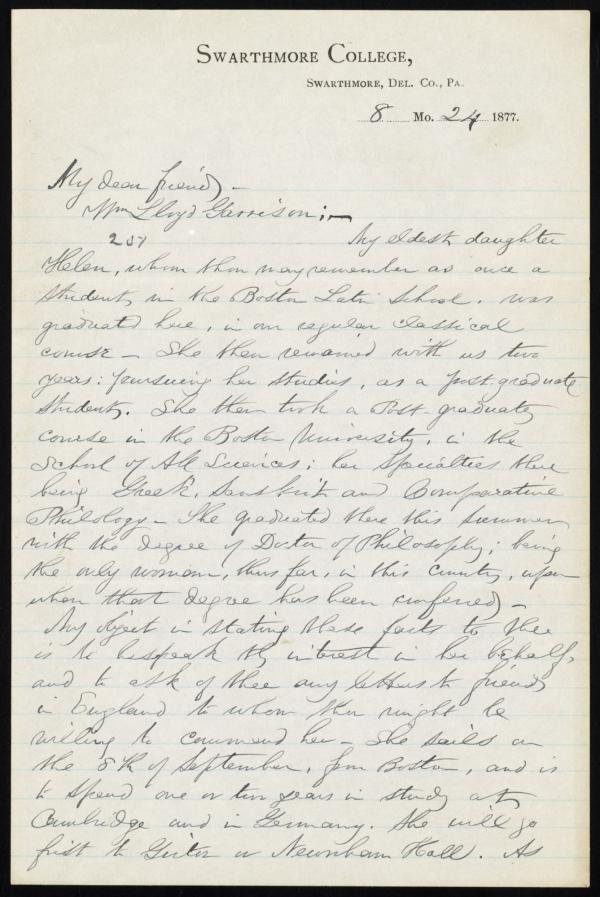 SWARTHMORE COLLEGE,
SWARTHMORE, DEL. CO., PA.
8 Mo. 24 1877.
My dear friend, -
Wm Lloyd Garrison: -
257 My eldest daughter
Helen, whom thou may remember as once a
student, in the Boston Latin School, was
graduated here, in our regular classical
course - She then remained with us two
years: pursuing her studies, as a post-graduate
student. She then took a Post-graduate
course in the Boston University, in the
School of All Sciences; her specialties there
being Greek, Sanskrit and Comparative
Philology - She graduated there this summer
with the degree of Doctor of Philosophy; being
the only woman, thus far, in this country, upon
whom that degree has been conferred -
My object in stating these facts to thee
is to bespeak thy interest in her behalf,
and to ask of thee any letters to friends
in England to whom thou might be
willing to commend her - She sails on
the 8th of September, from Boston, and is
to spend one or two years in study at
Cambridge and in Germany. She will go
first to Girton or Newnham Hall. As